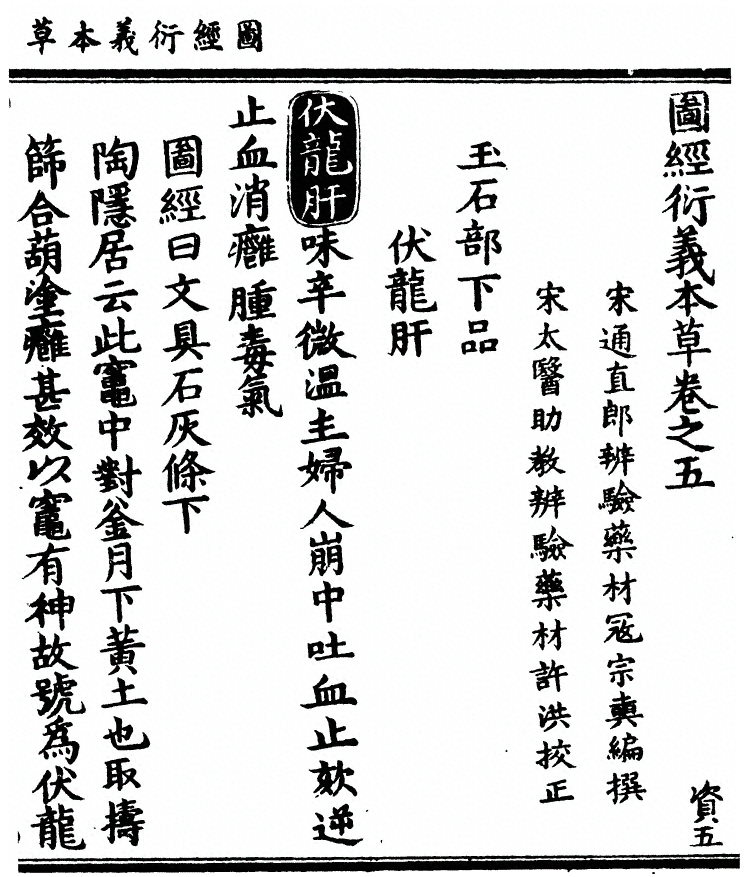 圖經衍義本草
圖經衍義本草卷之五 資五
宋通直郎辨驗藥材寇宗奭編撰
宋太醫助教辨驗藥材許洪挍正
玉石部下品
伏龍肝
伏龍肝味辛微溫主婦人崩中吐血止欬逆
止血消癰腫毒氣
圖經曰文具石灰條下
陶隱居云此竈中對釜月下黃土也取擣
篩合葫塗癰甚效以竈有神故號爲伏龍